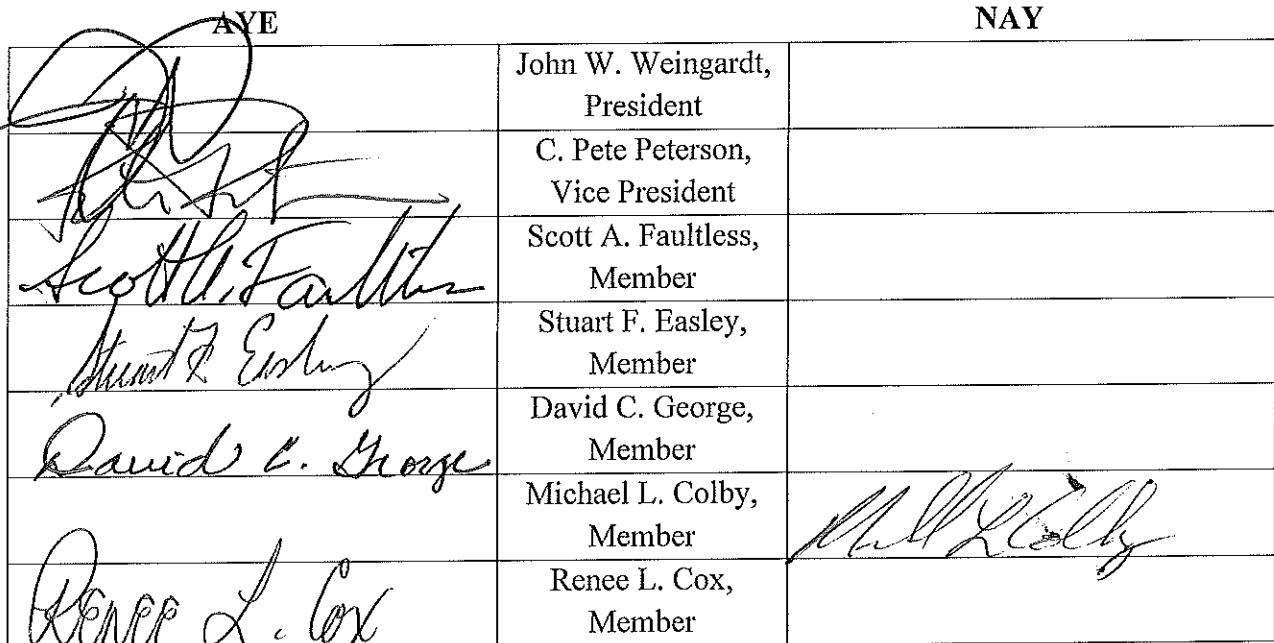 AYE NAY
John W. Weingardt,
President
C. Pete Peterson,
Vice President
Scott A. Faultless
Scott A. Faultless,
Member
Stuart F. Easley
Stuart F. Easley,
Member
David C. George
David C. George,
Member
Michael L. Colby,
Member
Michael L Colby
RENEE L. Cox
Renee L. Cox,
Member